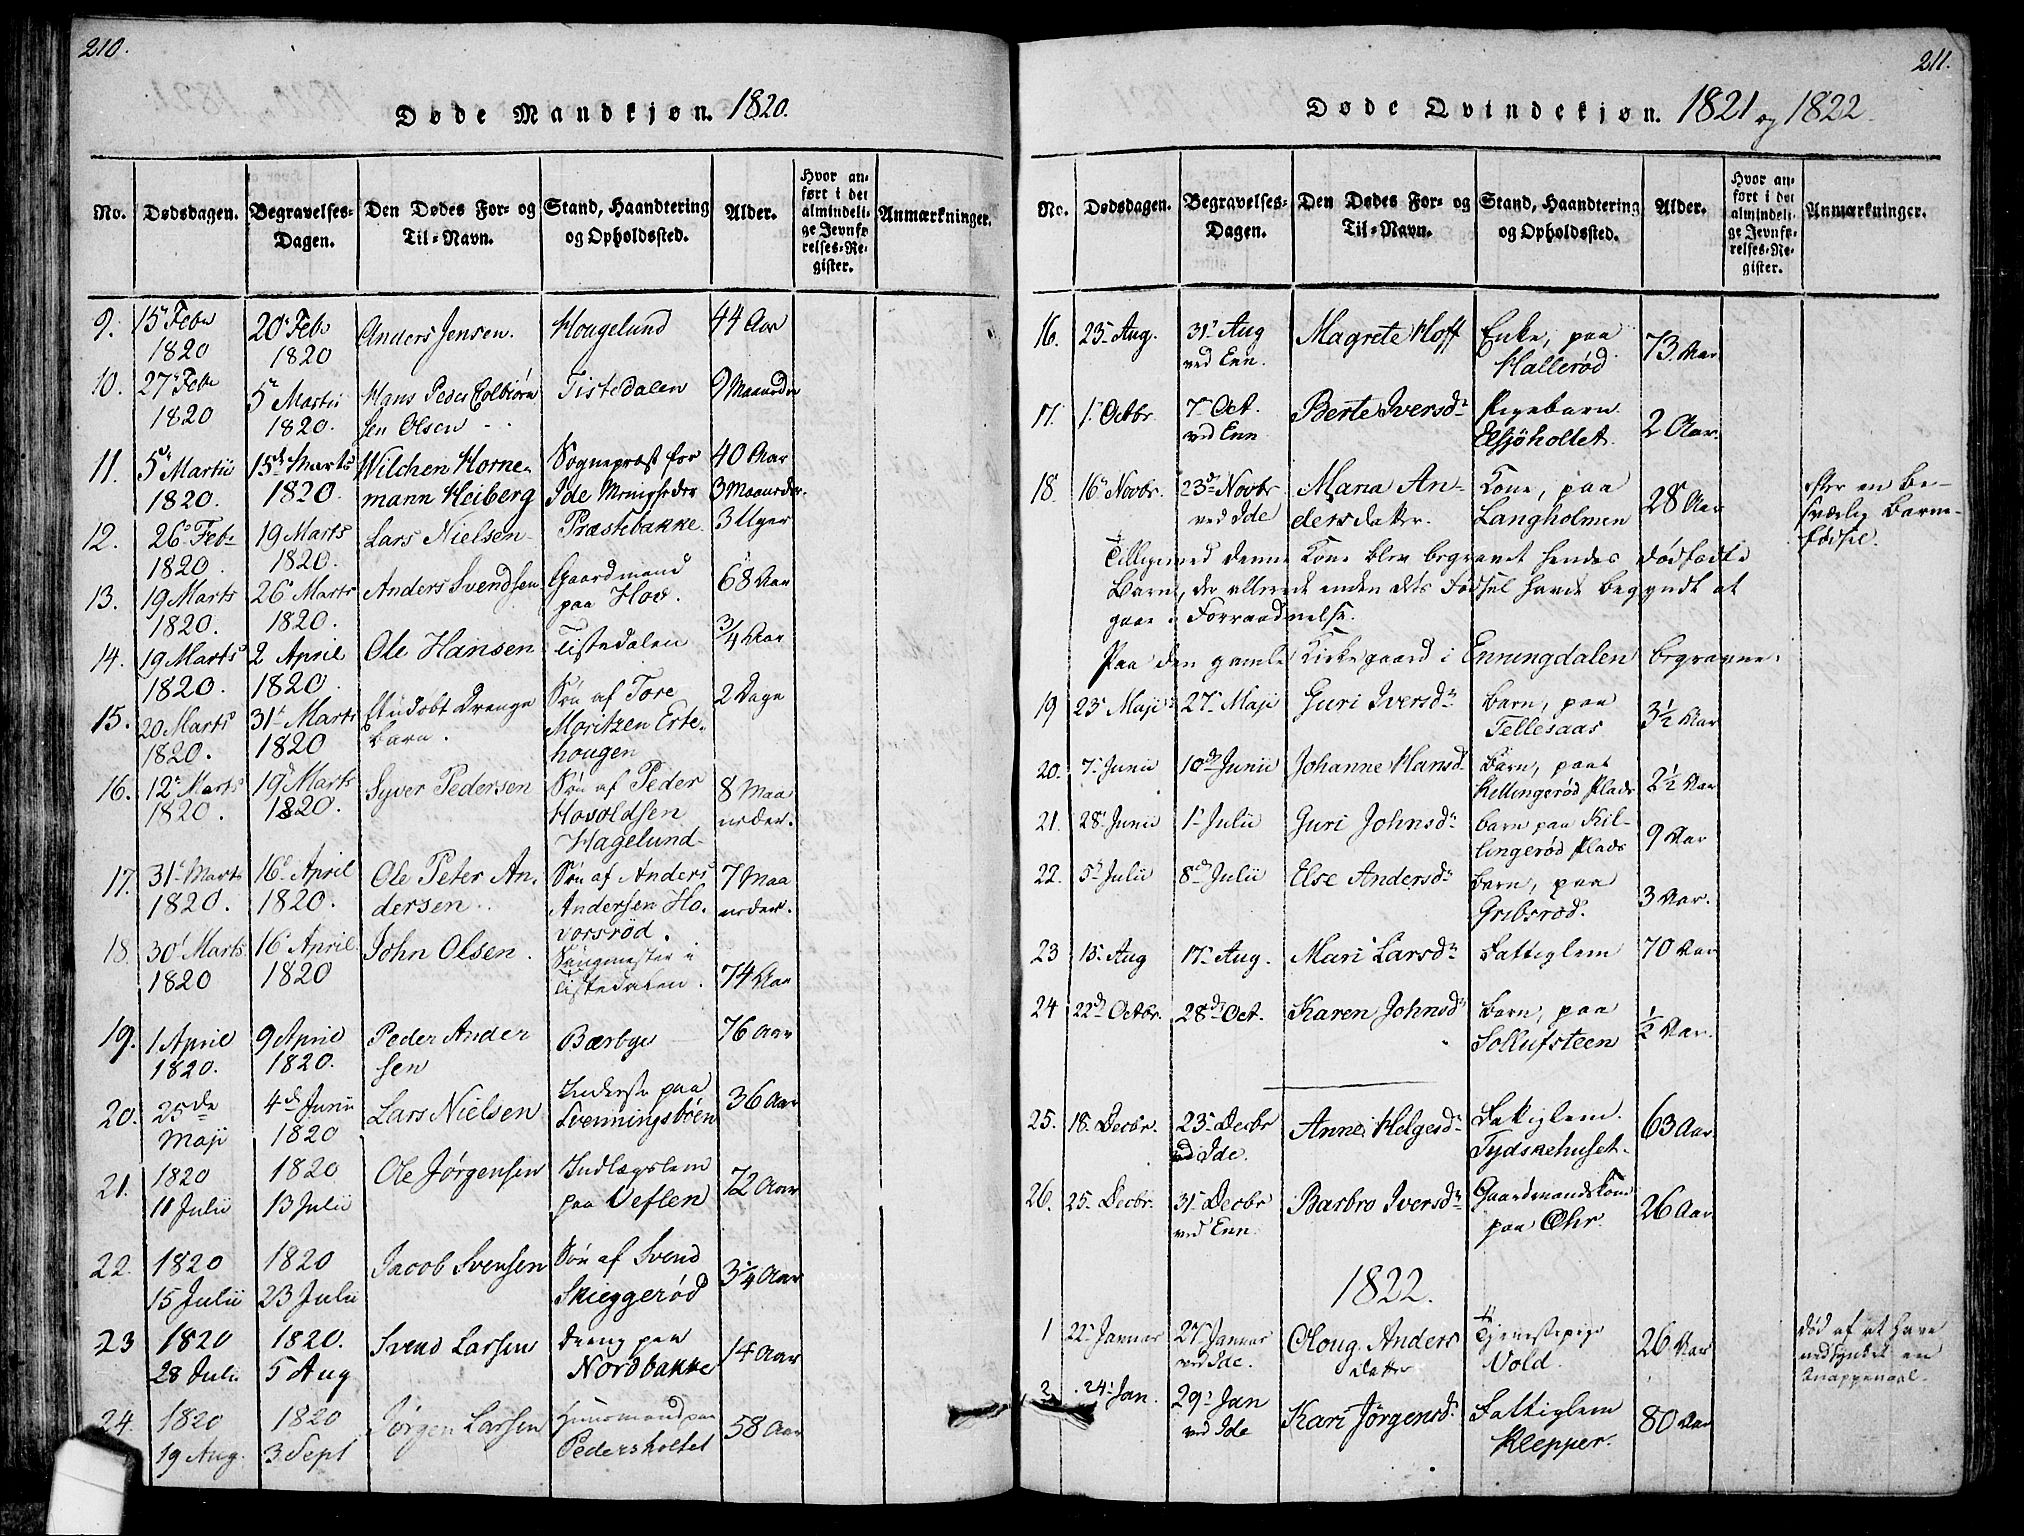 210.
Døde Mandkjøn. 1820.
No. Dødsdagen. Begravelses-Dagen. Den Dødes For- og Til-Navn. Stand, Haandtering og Opholdssted. Alder. Hvor anført i det almindelige Jevnførelses-Register. Anmærkninger.
9. 15 Febr 1820 20 Feb 1820 Anders Jensen. Hougelund 44 Aar
10. 27 Febr 1820 5 Martii 1820. Hans Peder Colbiørnsen Olsen Tistedalen 9 Maaneder
11. 5 Martii 1820. 15de Marts 1820. Wilchen Hornemann Heiberg Sognepræst for Ide Menigheder 40 Aar 3 Maaneder.
12. 26 Feb 1820. 19 Marts 1820. Lars Nielsen Præstebakke 3 Uger
13. 19 Marts 1820. 26 Marts 1820. Anders Svendsen Gaardmand paa Hov. 68 Aar
14. 19 Marts 1820. 2 April 1820. Ole Hansen Tistedalen 3/4 Aar
15. 20 Marts 1820. 31 Marts 1820 Et udøbt Drenge Barn. Søn af Tore Moritzen Ertehougen 2 Dage
16. 12 Marts 1820. 19 Marts 1820. Syver Pedersen Søn af Peder Hovoldsen Hagelund 8 Maaneder.
17. 31 Marts 1820. 16 April 1820. Ole Peter Andersen Søn af Anders Andersen Hovorsrød. 7 Maaneder.
18. 30 Marts 1820 16 April 1820 John Olsen. Saugmester i Tistedalen. 74 Aar
19. 1 April 1820. 9 April 1820. Peder Andersen Bærbye 76 Aar
20. 25de Maji 4de Junii 1820 Lars Nielsen Inderste paa Svenningsbøen 36 Aar
21. 1820 11 Julii 1820 13 Julii Ole Jørgensen Indlægslem paa Veflen 72 Aar
22. 1820 15 Julii 1820 23 Julii Jacob Svensen Søn af Svend Skieggerød 3 1/4 Aar
23 1820 28 Julii 1820. 5 Aug Svend Larsen Dreng paa Nordbakke 14 Aar
24. 1820 19 Aug. 1820 3 Sept Jørgen Larsen Huusmand paa Pedersholtet 58 Aar
211.
Døde Qvindekjøn. 1821 og 1822.
No. Dødsdagen. Begravelses-Dagen. Den Dødes For- og Til-Navn. Stand, Haandtering og Opholdssted. Alder. Hvor anført i det almindelige Jevnførelses-Register. Anmærkninger.
16. 23 Aug. 31 Aug ved Enn. Magrete Hoff Enke, paa Hallerød 73 Aar
17. 1 Octbr. 7 Oct. ved Enn Berte Iversd. Pigebarn Elsjøhollet. 2 Aar.
18. 16 Novbr. 23de Novbr ved Ide Maria Andersdatter. Kone, paa Langholmen 28 Aar efter en besværlig Barnefødsel.
Tilligemed denne Kone blev begravet hendes dødfødte
Barn, der allerede inden dets Fødsel havde begyndt at
gaae i Forraadnelse.
Paa den gamle Kirkegaard i Enningdalen begravne:
19 23 Maji 27 Maji Guri Iversd. Barn, paa Tellesaas 3 1/2 Aar
20. 7 Junii 10de Junii Johanne Hansd. Barn, paa Killingerød Plads 2 1/2 Aar
21. 28 Junii 1 Julii Guri Johnsd. Barn paa Killingerød Plads 9 Aar
22. 5 Julii 8de Julii Else Andersd. Barn, paa Gribsrød. 3 Aar.
23 15 Aug 17 Aug. Mari Larsd. Fattiglem 70 Aar
24 22de Octbr. 28de Oct. Karen Johnsd. Barn, paa Sollufsteen 1/2 Aar.
25. 18 Decbr. 23 Decbr ved Ide. Anne Helgesd. Fattiglem. Tydskehuset. 63 Aar
26. 25 Decbr. 31 Decbr ved Enn. Barbro Iversd. Gaardmandskone paa Ohr. 26 Aar
1822.
1 22 Januar 27 Januar ved Ide. Oloug Andersdatter Tjenestepige Vold. 26 Aar død af at have nedsynket en Knappenaal.
2 24 Jan. 29 Jan ved Ide Kari Jørgensd. Fattiglem Klepper. 80 Aar